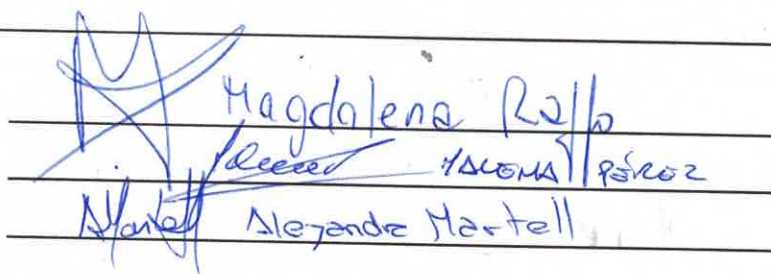 Magdalena Raffo
MALENA PÉREZ
AMartell Alejandra Martell